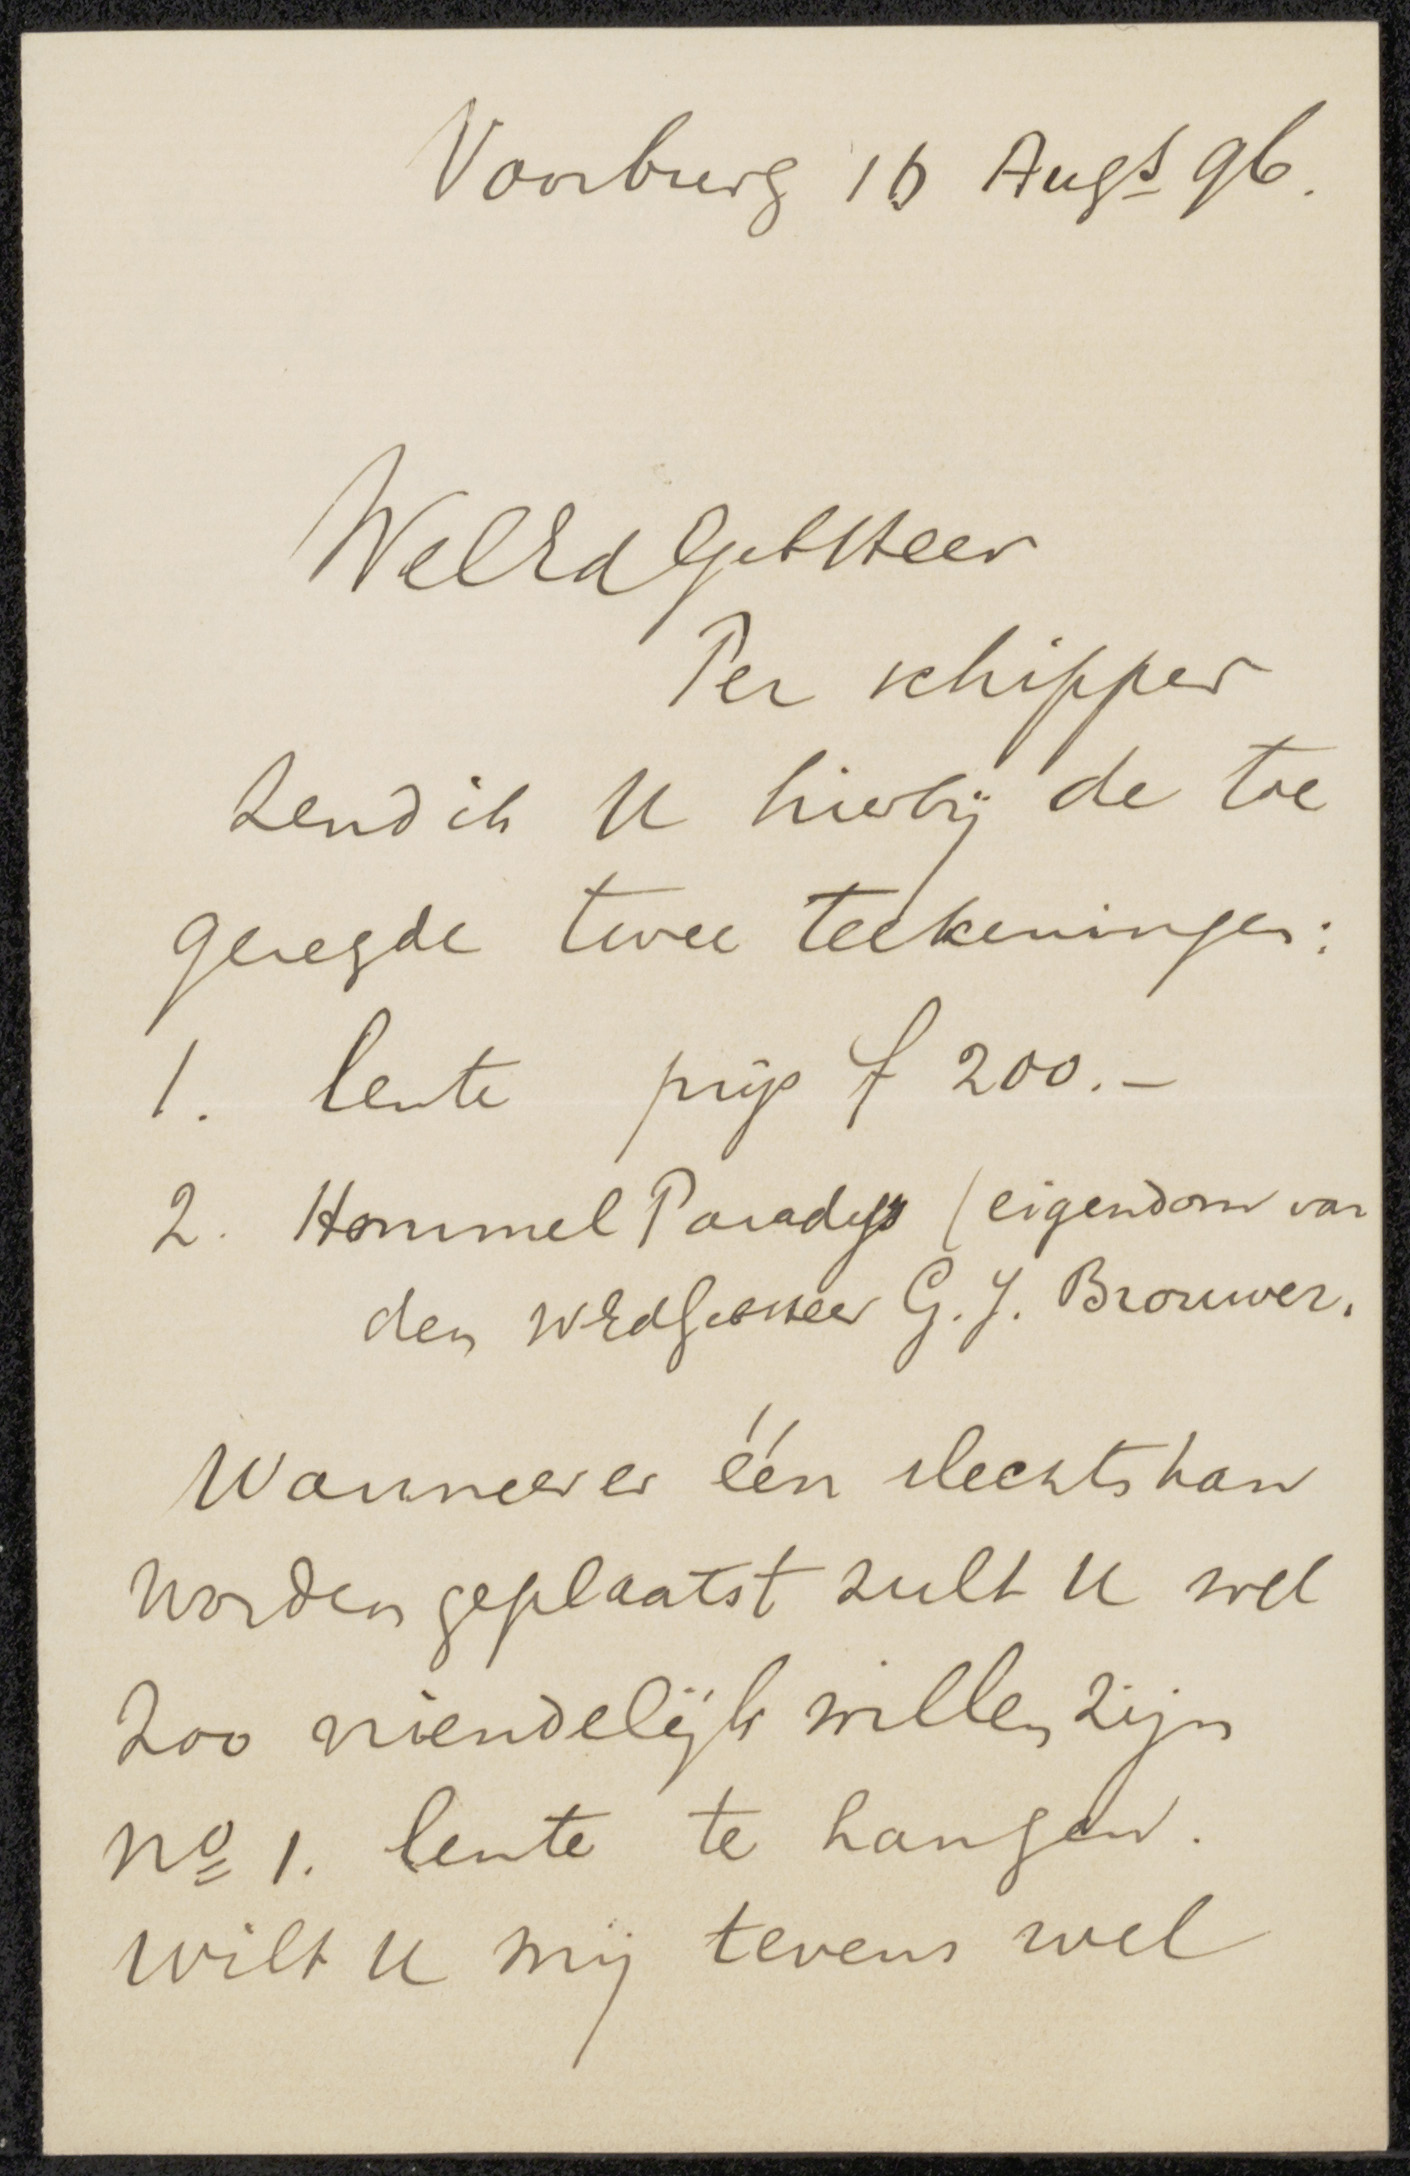 Voorburg 16 Augst 96.
WelEdGebHeer
Per schipper
zend ik U hierbij de toe
gezegde twee teekeningen:
1. lente prijs f 200.-
2. Hommel Paradijs (eigendom van
den WEdGebHeer G. J. Brouwer.
Wanneer er één slechts kan
worden geplaatst zult U wel
zoo vriendelijk willen zijn
No 1. lente te hangen.
Wilt U mij tevens wel